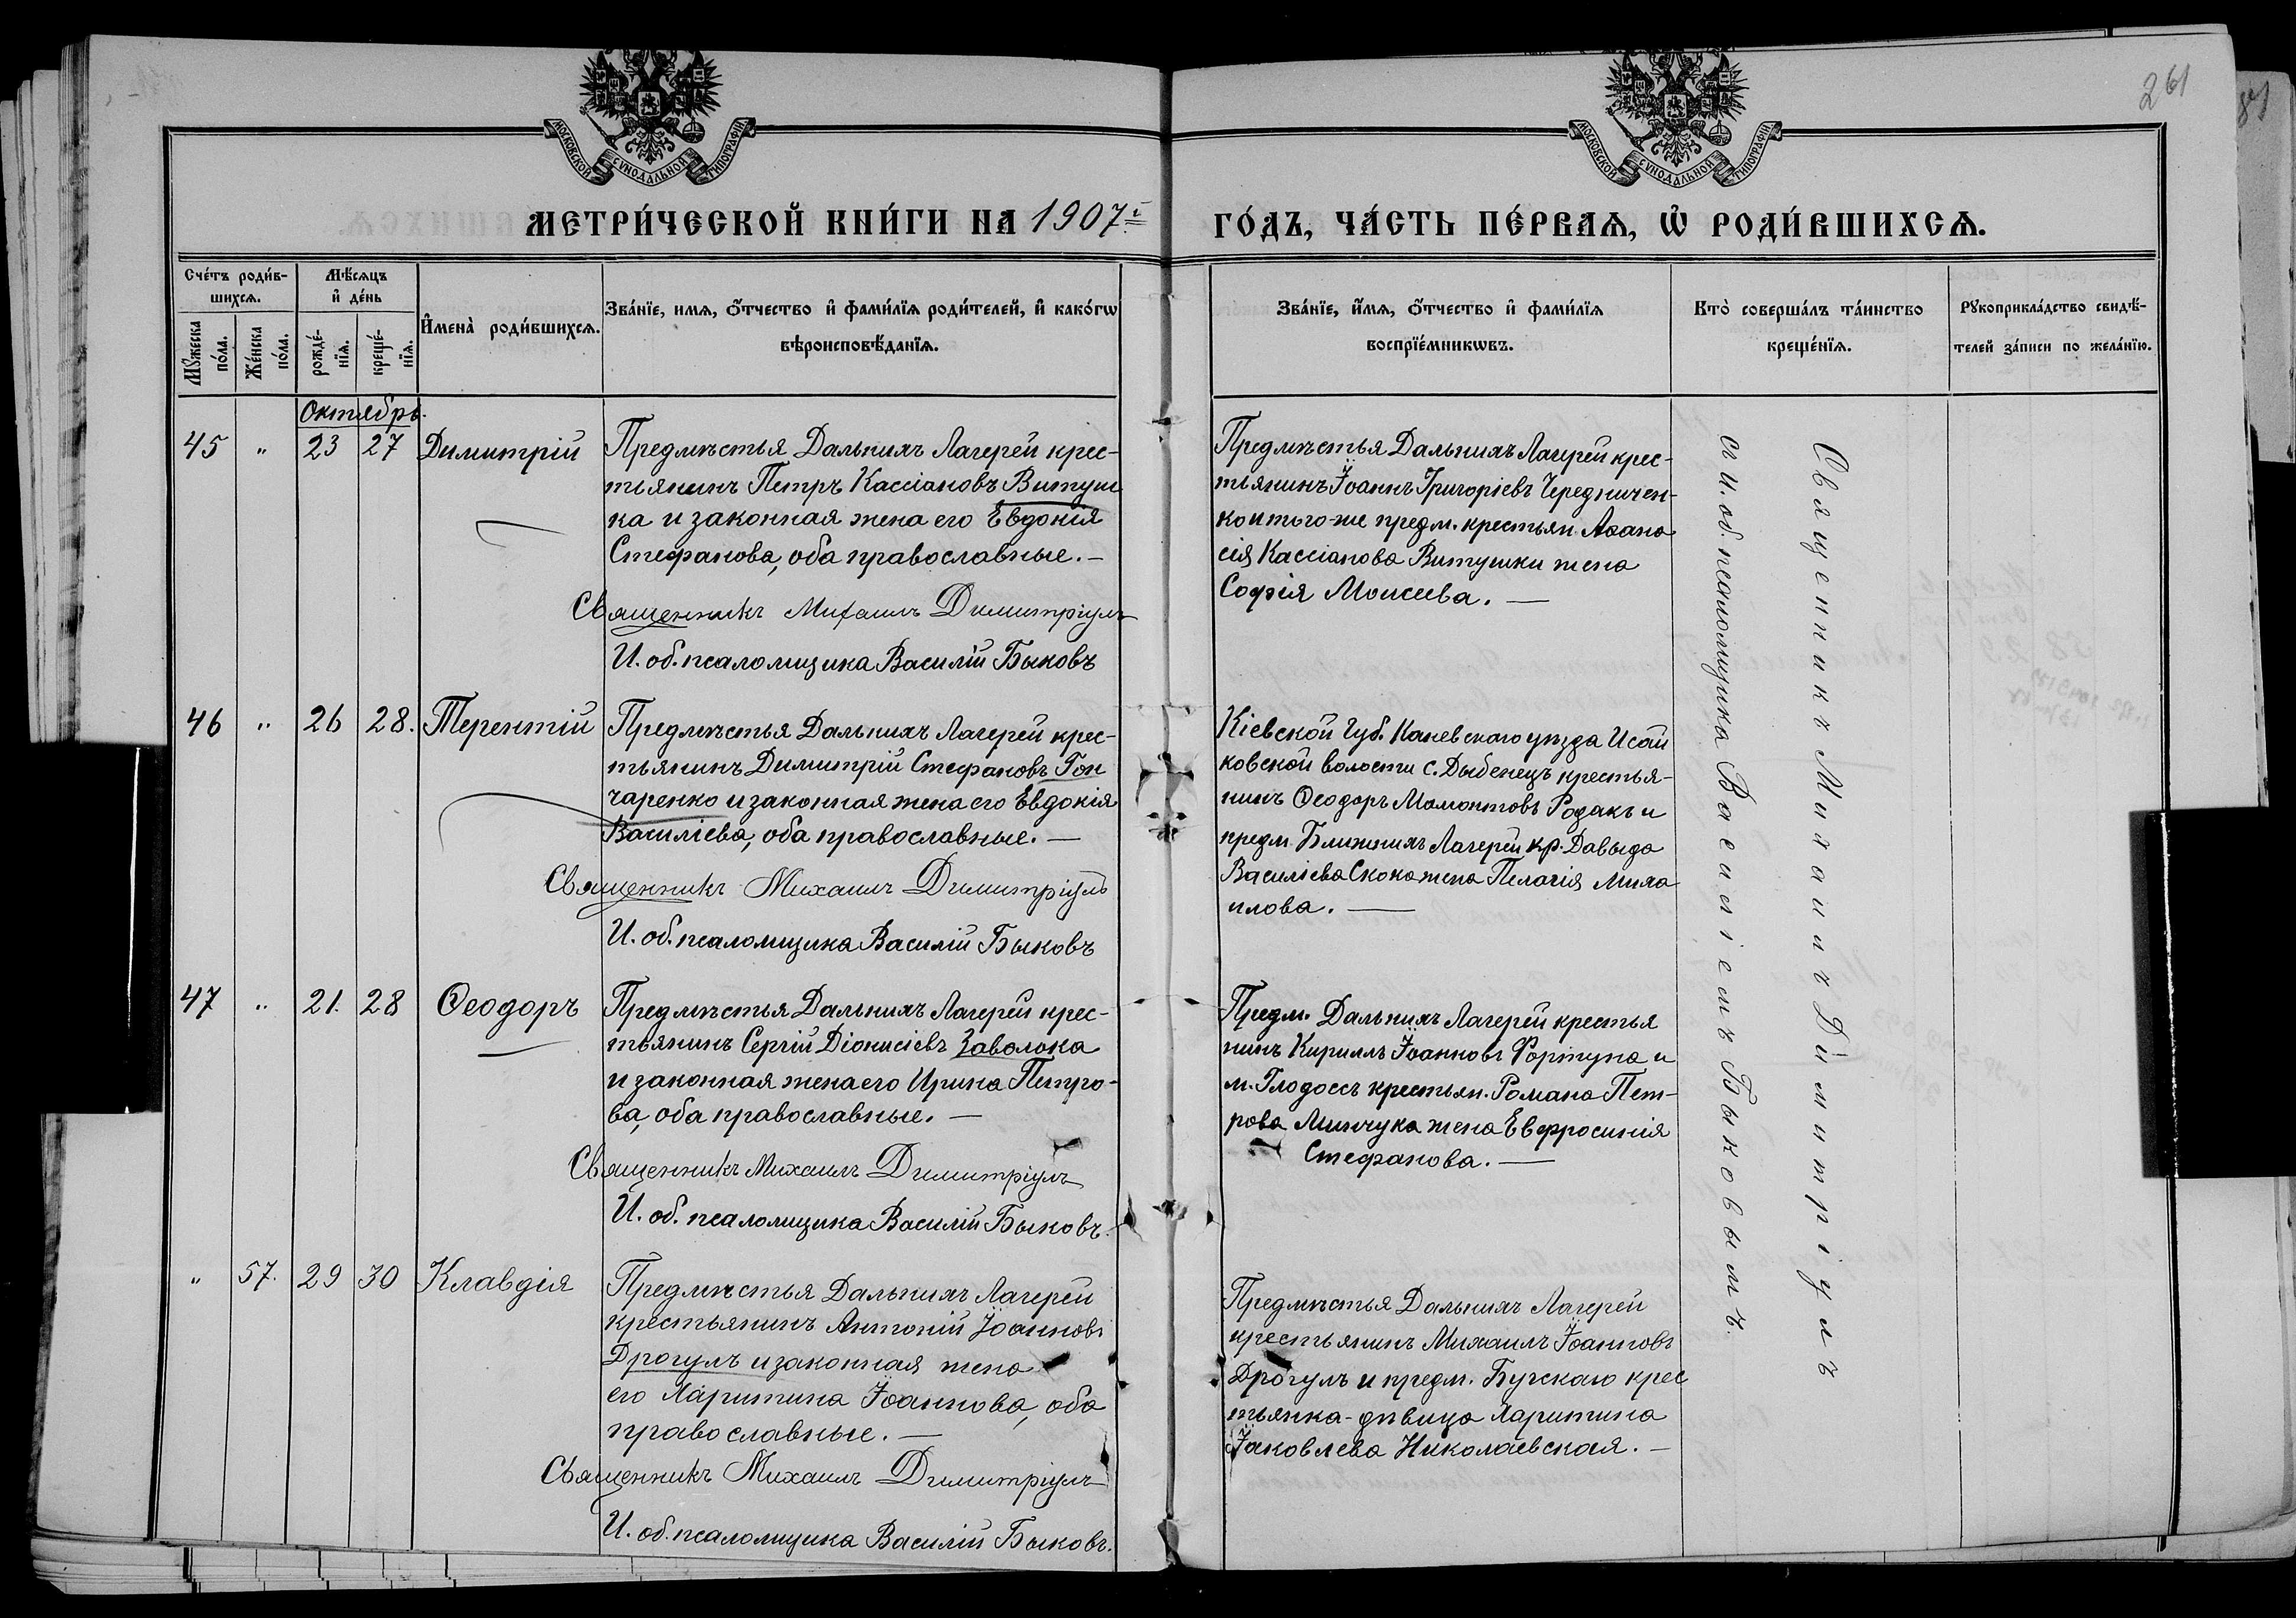 261
МОСКОВСКОЙ СѴНОДАЛЬНОЙ ТИПОГРАФІИ.
МОСКОВСКОЙ СѴНОДАЛЬНОЙ ТИПОГРАФІИ.
МЕТРИ́ЧЕСКОЙ КНИ́ГИ НА 1907й
ГО́ДЪ, ЧА́СТЬ ПЕ́РВАѦ, Ѡ҆ РОДИ́ВШИХСѦ.
Сче́тъ роди́в-
шихсѧ.
Мꙋжеска по́ла.
Же́нска по́ла.
Мѣ́сѧцъ
и҆ де́нь
рожде́-
нїѧ.
креще́-
нїѧ.
И҆мена̀ роди́вшихсѧ.
Зва́нїе, имѧ, ѻ҆́тчество и҆ фамѝлїѧ роди́телей, и҆ како́гѡ
вѣроисповѣ́данїѧ.
Зва́нїе, и҆́мѧ, ѻ҆́тчество и҆ фами́лїѧ
воспрїе́мникѡвъ.
Кто̀ соверша́лъ та́инство
креще́нїѧ.
Рꙋкоприкла́дство свидѣ́-
телей за́писи по жела́нїю.
Октябрь.
45 " 23 27 Димитрій
Предмѣстья Дальнихъ Лагерей крес-
тьянинъ Петръ Кассіановъ Витуш
ка и законная жена его Евдокія
Стефанова, оба православные. —
Священникъ Михаилъ Димитріулъ
И. об. псаломщика Василій Быковъ
Предмѣстья Дальнихъ Лагерей крес-
тьянинъ Іоаннъ Григоріевъ Чередничен-
ко и того-же предм. крестьян. Аѳана
сія Кассіанова Витушки жена
Софія Моисеева. —
46 " 26 28. Терентій
Предмѣстья Дальнихъ Лагерей крес-
тьянинъ Димитрій Стефановъ Гон
чаренко и законная жена его Евдокія
Василіева, оба православные. —
Священникъ Михаилъ Димитріулъ
И. об. псаломщика Василій Быковъ
Кіевской Губ. Каневскаго уѣзда Исай
ковской волости с. Дыбенецъ крестья-
нинъ Ѳеодоръ Мамонтовъ Родакъ и
предм. Ближнихъ Лагерей кр. Давыда
Василіева Скока жена Пелагія Миха
илова. —
47 " 21. 28 Ѳеодоръ
Предмѣстья Дальнихъ Лагерей крес-
тьянинъ Сергій Діонисіевъ Заволока
и законная жена его Ирина Петро-
ва, оба православные. —
Священникъ Михаилъ Димитріулъ
И. об. псаломщика Василій Быковъ.
Предм. Дальнихъ Лагерей крестья
нинъ Кириллъ Іоанновъ Фортуна и
м. Глодоссъ крестьян. Романа Пет-
рова Минчука жена Евфросинія
Стефанова. —
" 57. 29 30 Клавдія
Предмѣстья Дальнихъ Лагерей
крестьянинъ Антоній Іоанновъ
Драгулъ и законная жена
его Харитина Іоаннова, оба
православные. —
Священникъ Михаилъ Димитріулъ
И. об. псаломщика Василій Быковъ.
Предмѣстья Дальнихъ Лагерей
крестьянинъ Михаилъ Іоанновъ
Драгулъ и предм. Бугскаго крес
тьянка-дѣвица Харитина
Іаковлева Николаевская. —
Священникъ Михаилъ Димитріулъ
съ и. об. псаломщика Василіемъ Быковымъ.